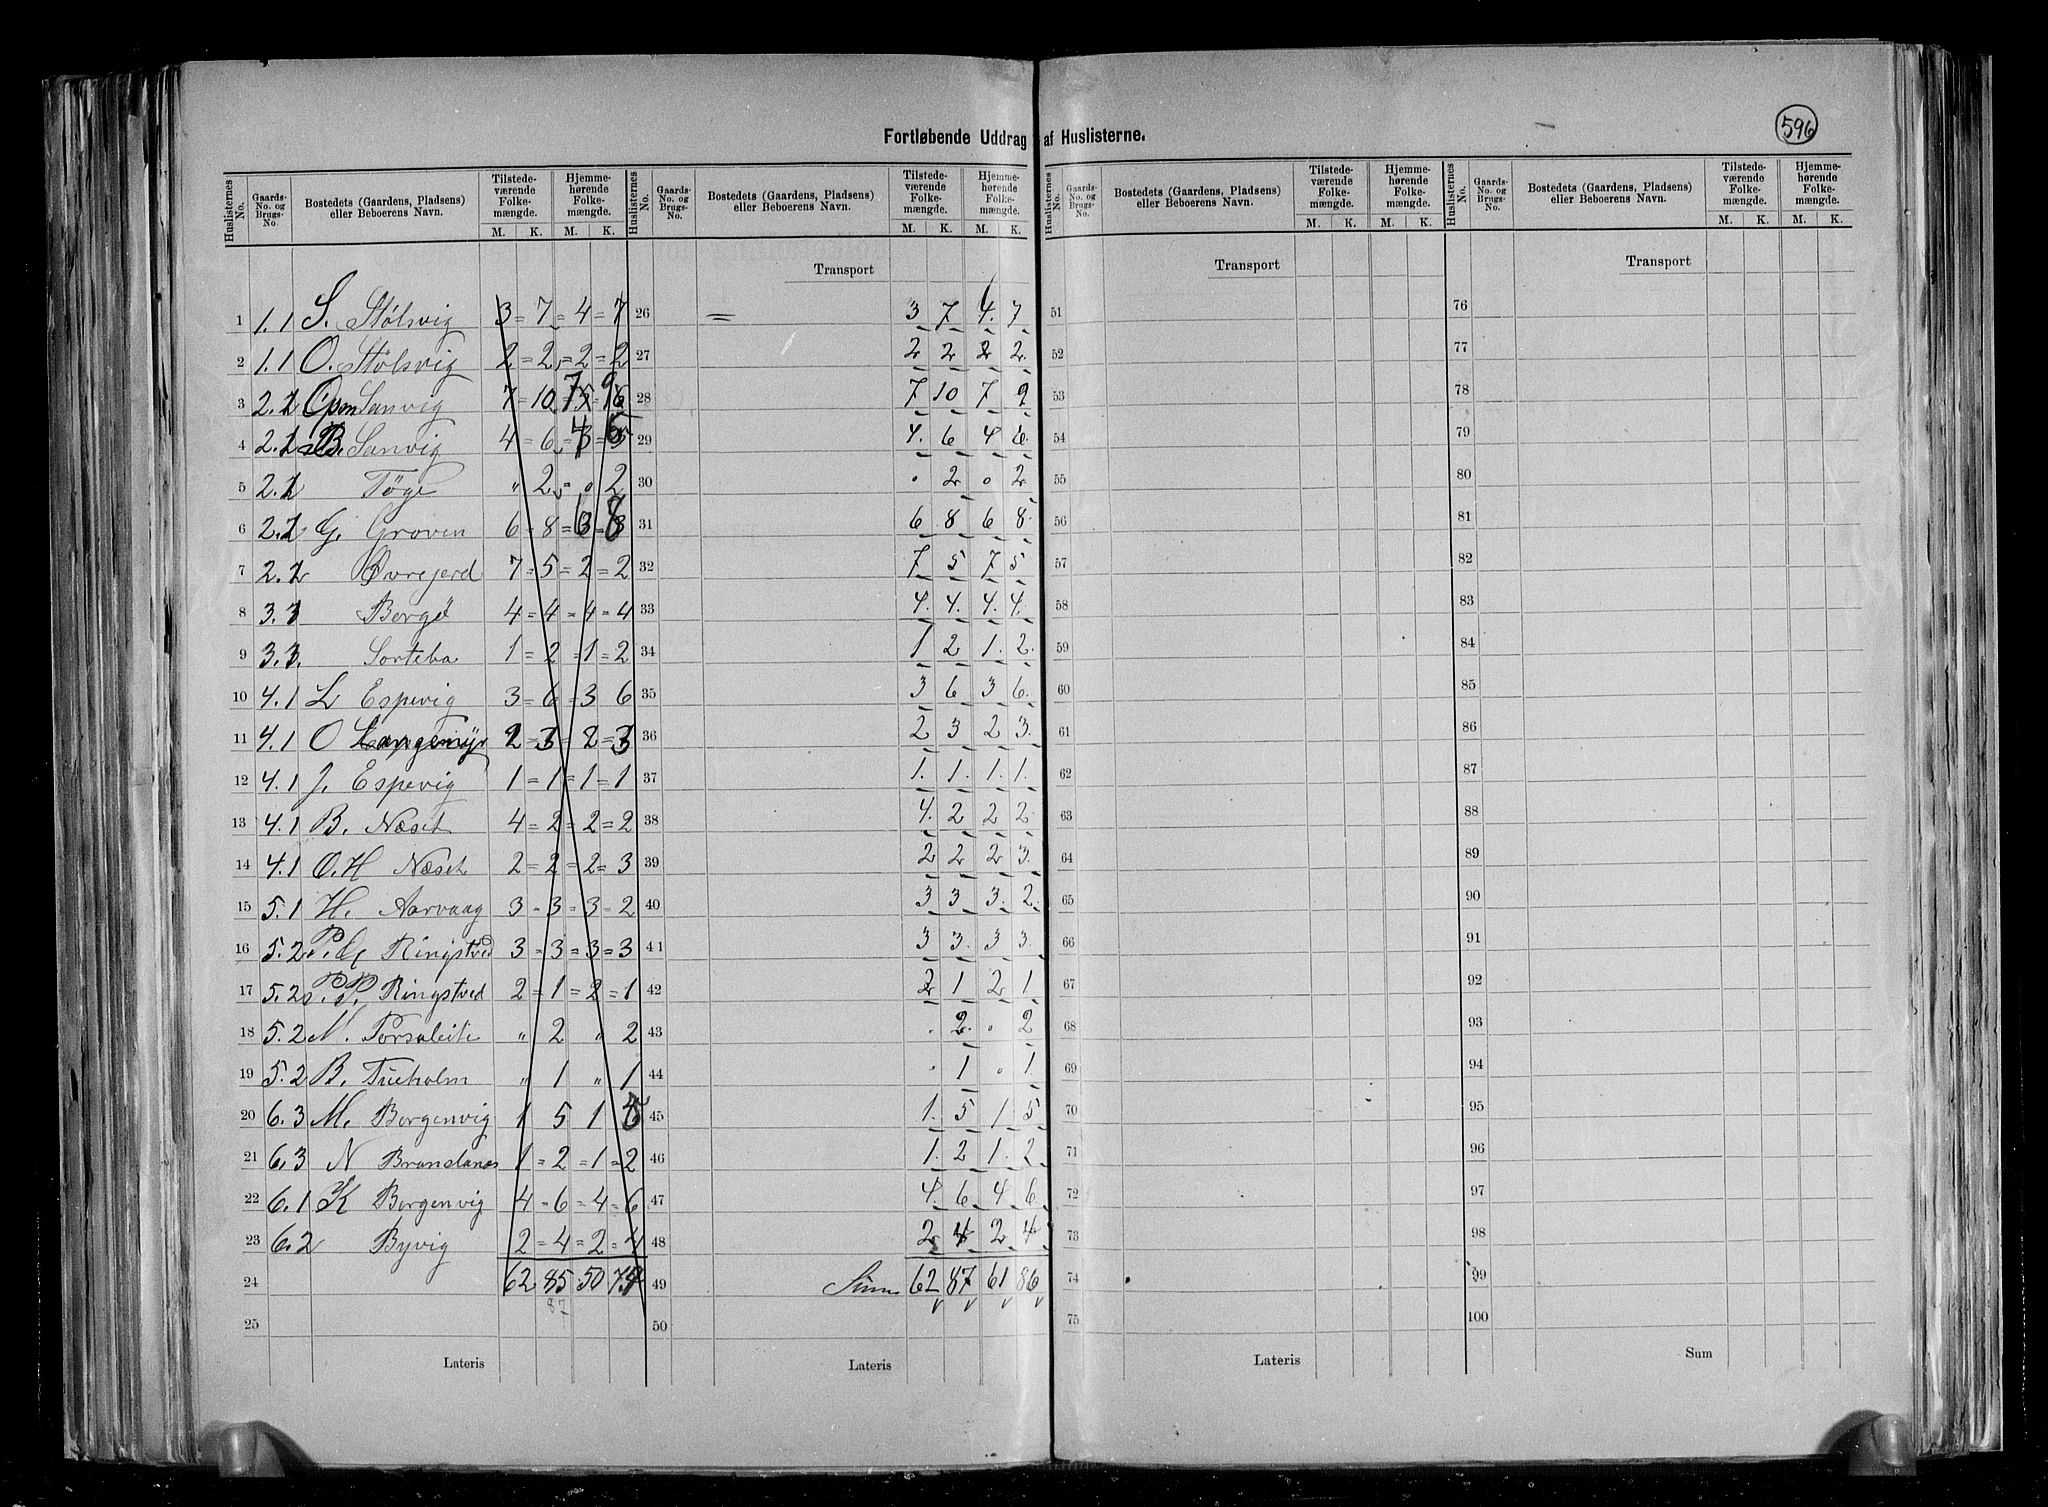 596
Fortløbende Uddrag af Huslisterne.
Huslisternes No. Gaards-No. og Brugs-No. Bostedets (Gaardens, Pladsens) eller Beboerens Navn. Tilstedeværende Folkemængde. M. K. Hjemmehørende Folkemængde. M. K.
Huslisternes No. Gaards-No. og Brugs-No. Bostedets (Gaardens, Pladsens) eller Beboerens Navn. Tilstedeværende Folkemængde. M. K. Hjemmehørende Folkemængde. M. K.
Huslisternes No. Gaards-No. og Brugs-No. Bostedets (Gaardens, Pladsens) eller Beboerens Navn. Tilstedeværende Folkemængde. M. K. Hjemmehørende Folkemængde. M. K.
Huslisternes No. Gaards-No. og Brugs-No. Bostedets (Gaardens, Pladsens) eller Beboerens Navn. Tilstedeværende Folkemængde. M. K. Hjemmehørende Folkemængde. M. K.
Transport Transport Transport
1 1.1 S. Stølsvig 3 = 7 = 4 = 7 26 = 3 7 4. 7 51 76
2 1.1 O. Stølsvig 2 = 2 = 2 = 2 27 2 2 2 2. 52 77
3 2.1 Sanvig 7 = 10 7 9 28 7 10 7 9 53 78
4 2.1 B. Sanvig 4 = 6 = 4 6 29 4. 6 4 6. 54 79
5 2.1 Töge " 2 = " 2 30 " 2 " 2 55 80
6 2.1 G. Groven 6 = 8 = 6 = 8 31 6 8 6 8. 56 81
7 2.1 Øvrejerd 7 = 5 = 2 = 2 32 7 5 7 5. 57 82
8 3.1 Bergé 4 = 4 = 4 = 4 33 4. 4. 4. 4. 58 83
9 3.3. Sorteba 1 = 2 = 1 = 2 34 1 2 1. 2. 59 84
10 4.1 L Espevig 3 = 6 = 3 6 35 3 6 3 6. 60 85
11 4.1 O Langemyr 2 = 3 = 2 = 3 36 2 3 2 3. 61 86
12 4.1 J. Espevig 1 = 1 = 1 = 1 37 1. 1. 1. 1. 62 87
13 4.1 B. Næset 4 = 2 = 2 = 2 38 4. 2 2 2. 63 88
14 4.1 O. H Næset 2 = 2 = 2 = 3 39 2 2 2 3. 64 89
15 5.1 H. Aarvaag 3 = 3 = 3 = 2 40 3 3 3. 2. 65 90
16 5.2 Ringstved 3 = 3 = 3 = 3 41 3 3. 3 3. 66 91
17 5.2 P. P. Ringstved 2 = 1 = 2 = 1 42 2 1 2 1 67 92
18 5.2 M. Porsaleite " 2 " 2 43 " 2. " 2 68 93
19 5.2 B. Tueholm " 1 " 1 44 " 1 " 1. 69 94
20 6.3 M. Borgenvig 1 5 1 5 45 1. 5 1 5 70 95
21 6.3 N Brandanes 1 = 2 = 1 = 2 46 1. 2 1. 2. 71 96
22 6.1 K Borgenvig 4 = 6 = 4 = 6 47 4. 6 4 6. 72 97
23 6.2 Byvig 2 = 4 = 2 = 4 48 2 4 2 4. 73 98
24 62 85 50 79 49 Sum 62 87 61 86 74 99
87
25 50 75 100
Lateris Lateris Lateris Sum